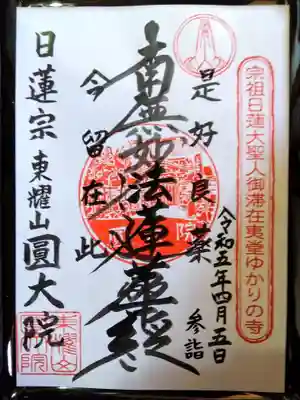 宗祖日蓮大聖人御滞在衷堂ゆかりの寺
令和五年四月五日
参詣
是好良薬
南無妙法蓮華経
今留在此
日蓮宗 東耀山 圓大院